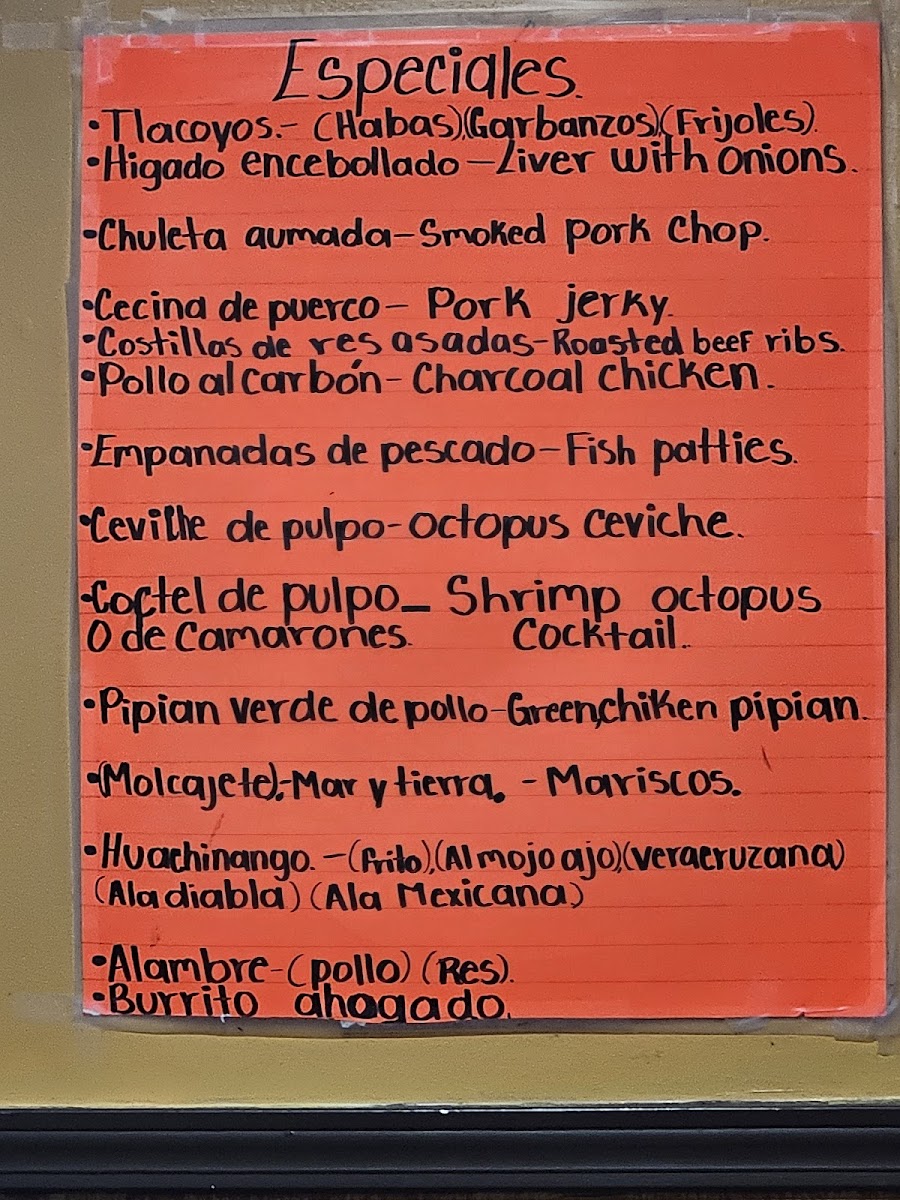 Especiales.
•Tlacoyos.- (Habas),(Garbanzos),(Frijoles).
•Higado encebollado-Liver with onions.
•Chuleta aumada-Smoked pork chop.
•Cecina de puerco- Pork jerky.
•Costillas de res asadas-Roasted beef ribs.
•Pollo al carbón- Charcoal chicken.
•Empanadas de pescado-Fish patties.
•Ceviche de pulpo-octopus ceviche.
•Coctel de pulpo_ Shrimp octopus
O de Camarones. Cocktail..
•Pipian verde de pollo-Green,chiken pipian.
•(Molcajete).-Mar y tierra. - Mariscos.
•Huachinango.-(frito),(Al mojo ajo),(veracruzana)
(Ala diabla) (Ala Mexicana)
•Alambre-(pollo) (Res).
•Burrito ahogado.